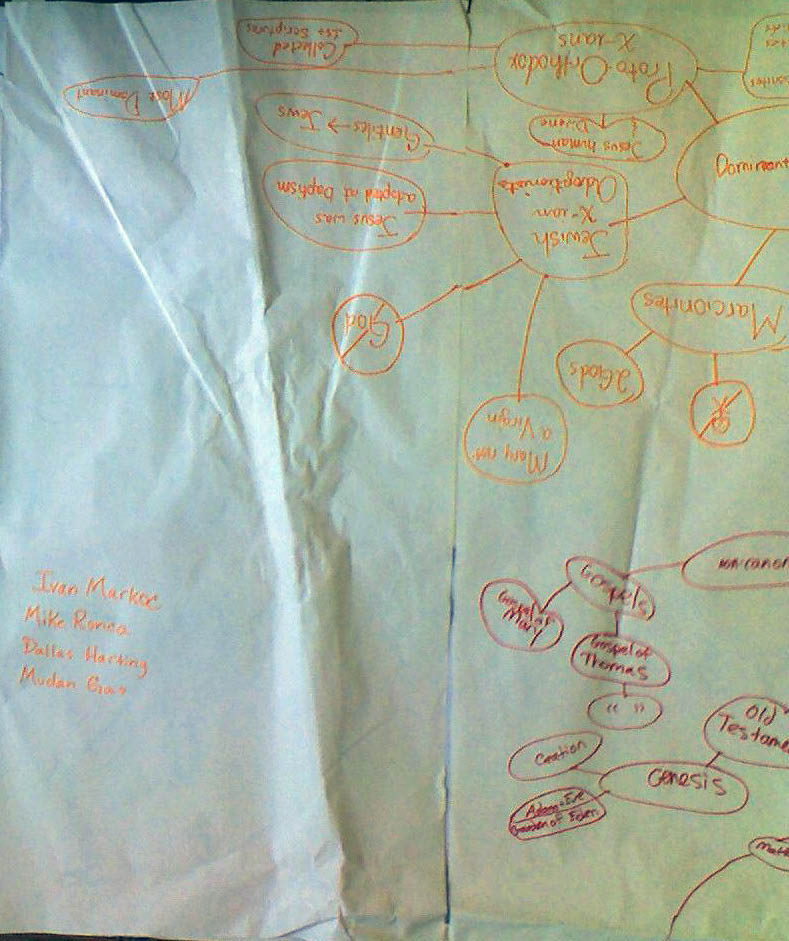 Collected
1st Scriptures
Proto-Orthodox
X-ians
Most Dominant
Jesus human
Divine
Dominant
Gentiles → Jews
Jewish
X-ian
Adoptionists
Jesus was
adopted at Baptism
God
Mary not
a Virgin
Marcionites
2 Gods
Gospels
Gospel of
Mary
Gospel of
Thomas
“ ”
non canon
Old
Testame
Genesis
Creation
Adam + Eve
Garden of Eden
Ivan
Mike
Dallas Harting
Mudan